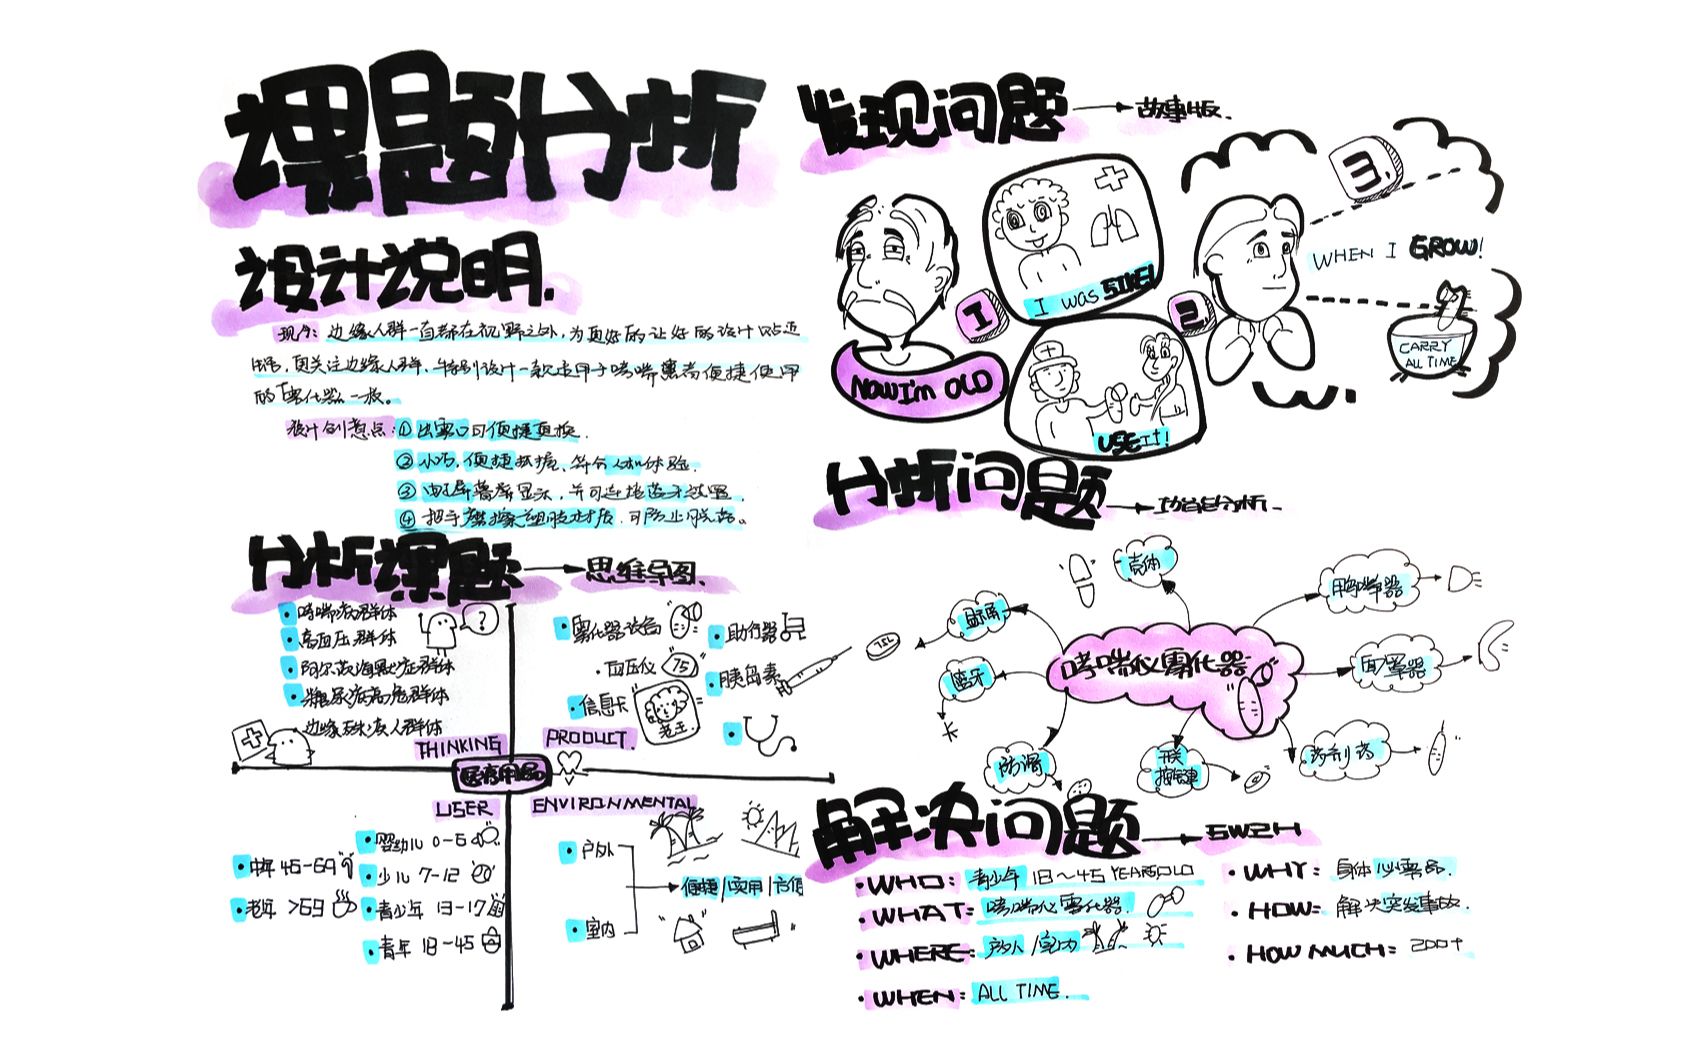 课题分析
设计说明.
现今: 边缘人群一直都在视野之外, 为更好的让好的设计贴近
生活, 更关注边缘人群, 特别设计一款适用于哮喘患者便捷使用
的「雾化器」一枚。
设计创意点: ① 出雾口可便捷更换.
② 小巧, 便捷抓握、符合人机体验.
③ 电子屏幕屏显示, 并可连接蓝牙放置.
④ 把手磨擦塑胶材质, 可防止脱落。
分析课题 → 思维导图.
• 哮喘病群体
• 高血压群体
• 阿尔茨海默症群体
• 糖尿病高危群体
边缘残疾人群体
?
THINKING
• 雾化器设备
• 血压仪 75
• 信息卡
老王
• 助行器
• 胰岛素
PRODUCT.
医疗用品
USER
• 婴幼儿 0-6
• 少儿 7-12
• 青少年 13-17
• 青年 18-45
• 中年 45-69
• 老年 >69
ENVIRONMENTAL
• 户外
• 室内
便捷/实用/方便
发现问题 → 故事版.
1
NOW I'm OLD
I was SIKE!
2.
USE IT!
3.
WHEN I GROW!
CARRY
ALL TIME
分析问题 → 功能分析.
哮喘仪雾化器
壳体
显示屏
75L
蓝牙
防滑
开关
按键
药剂形
面罩器
咬嘴器
解决问题 → 5W2H
• WHO: 青少年 18~45 YEARSOLD
• WHAT: 哮喘仪雾化器.
• WHERE: 户外/室内
• WHEN: ALL TIME.
• WHY: 身体必需品.
• HOW: 解决突发事故.
• HOW MUCH: 200+